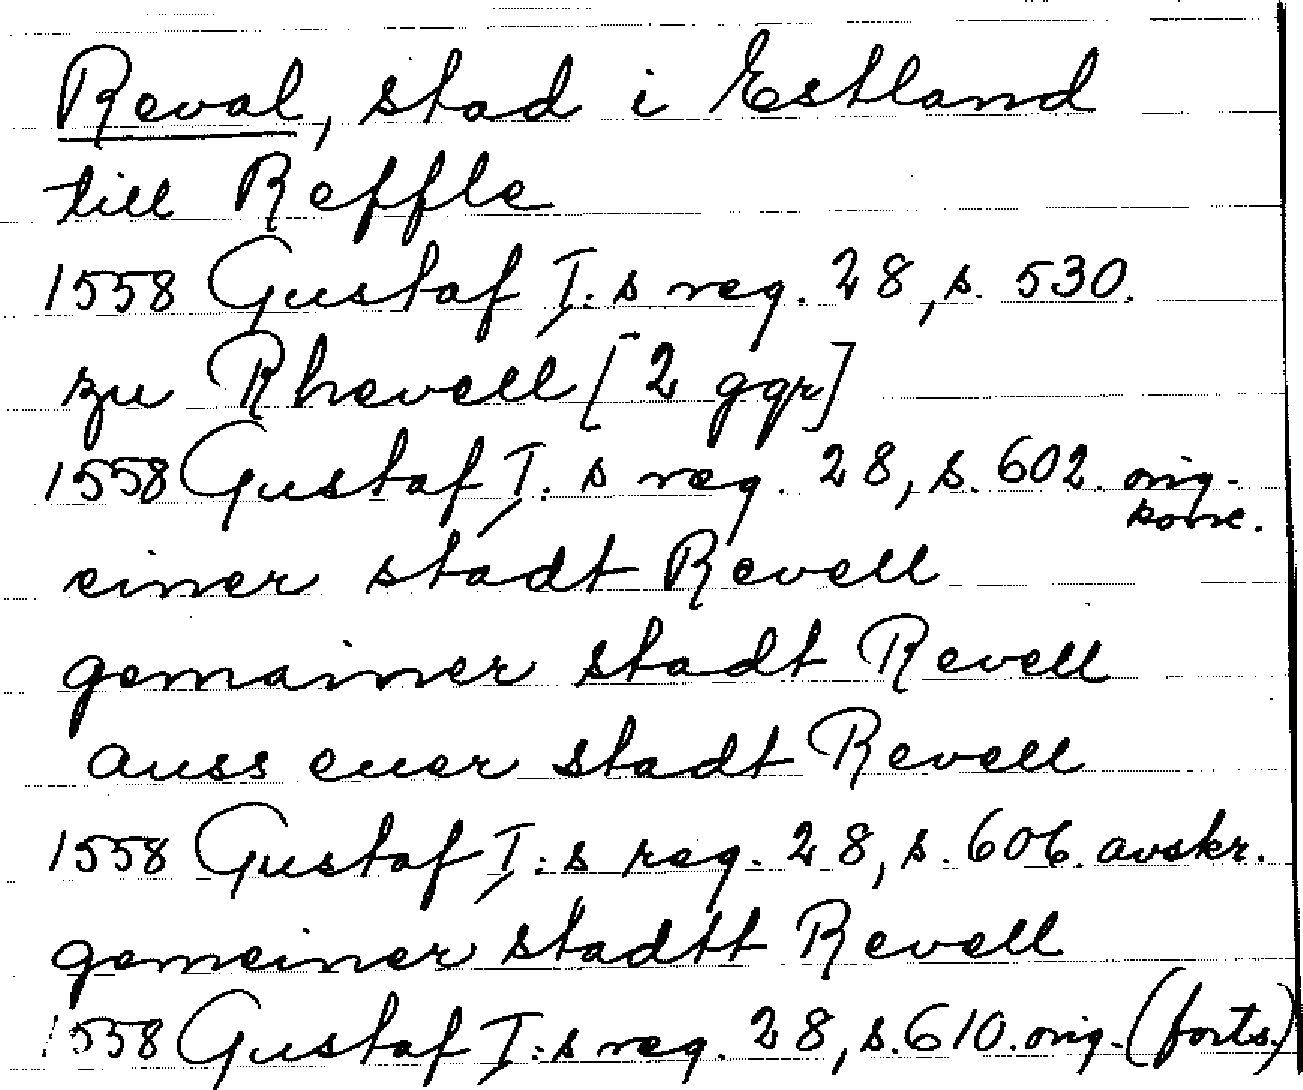 Reval, stad i Estland
till Reffle
1558 Gustaf I:s reg. 28, s. 530.
zu Rhevell [2 ggr]
1558 Gustaf I:s reg. 28, s. 602. orig. konc.
einer stadt Revell
gemainer stadt Revell
auss euer stadt Revell
1558 Gustaf I:s reg. 28, s. 606. avskr.
gemeiner stadtt Revell
1558 Gustaf I:s reg. 28, s. 610. orig. (forts.)